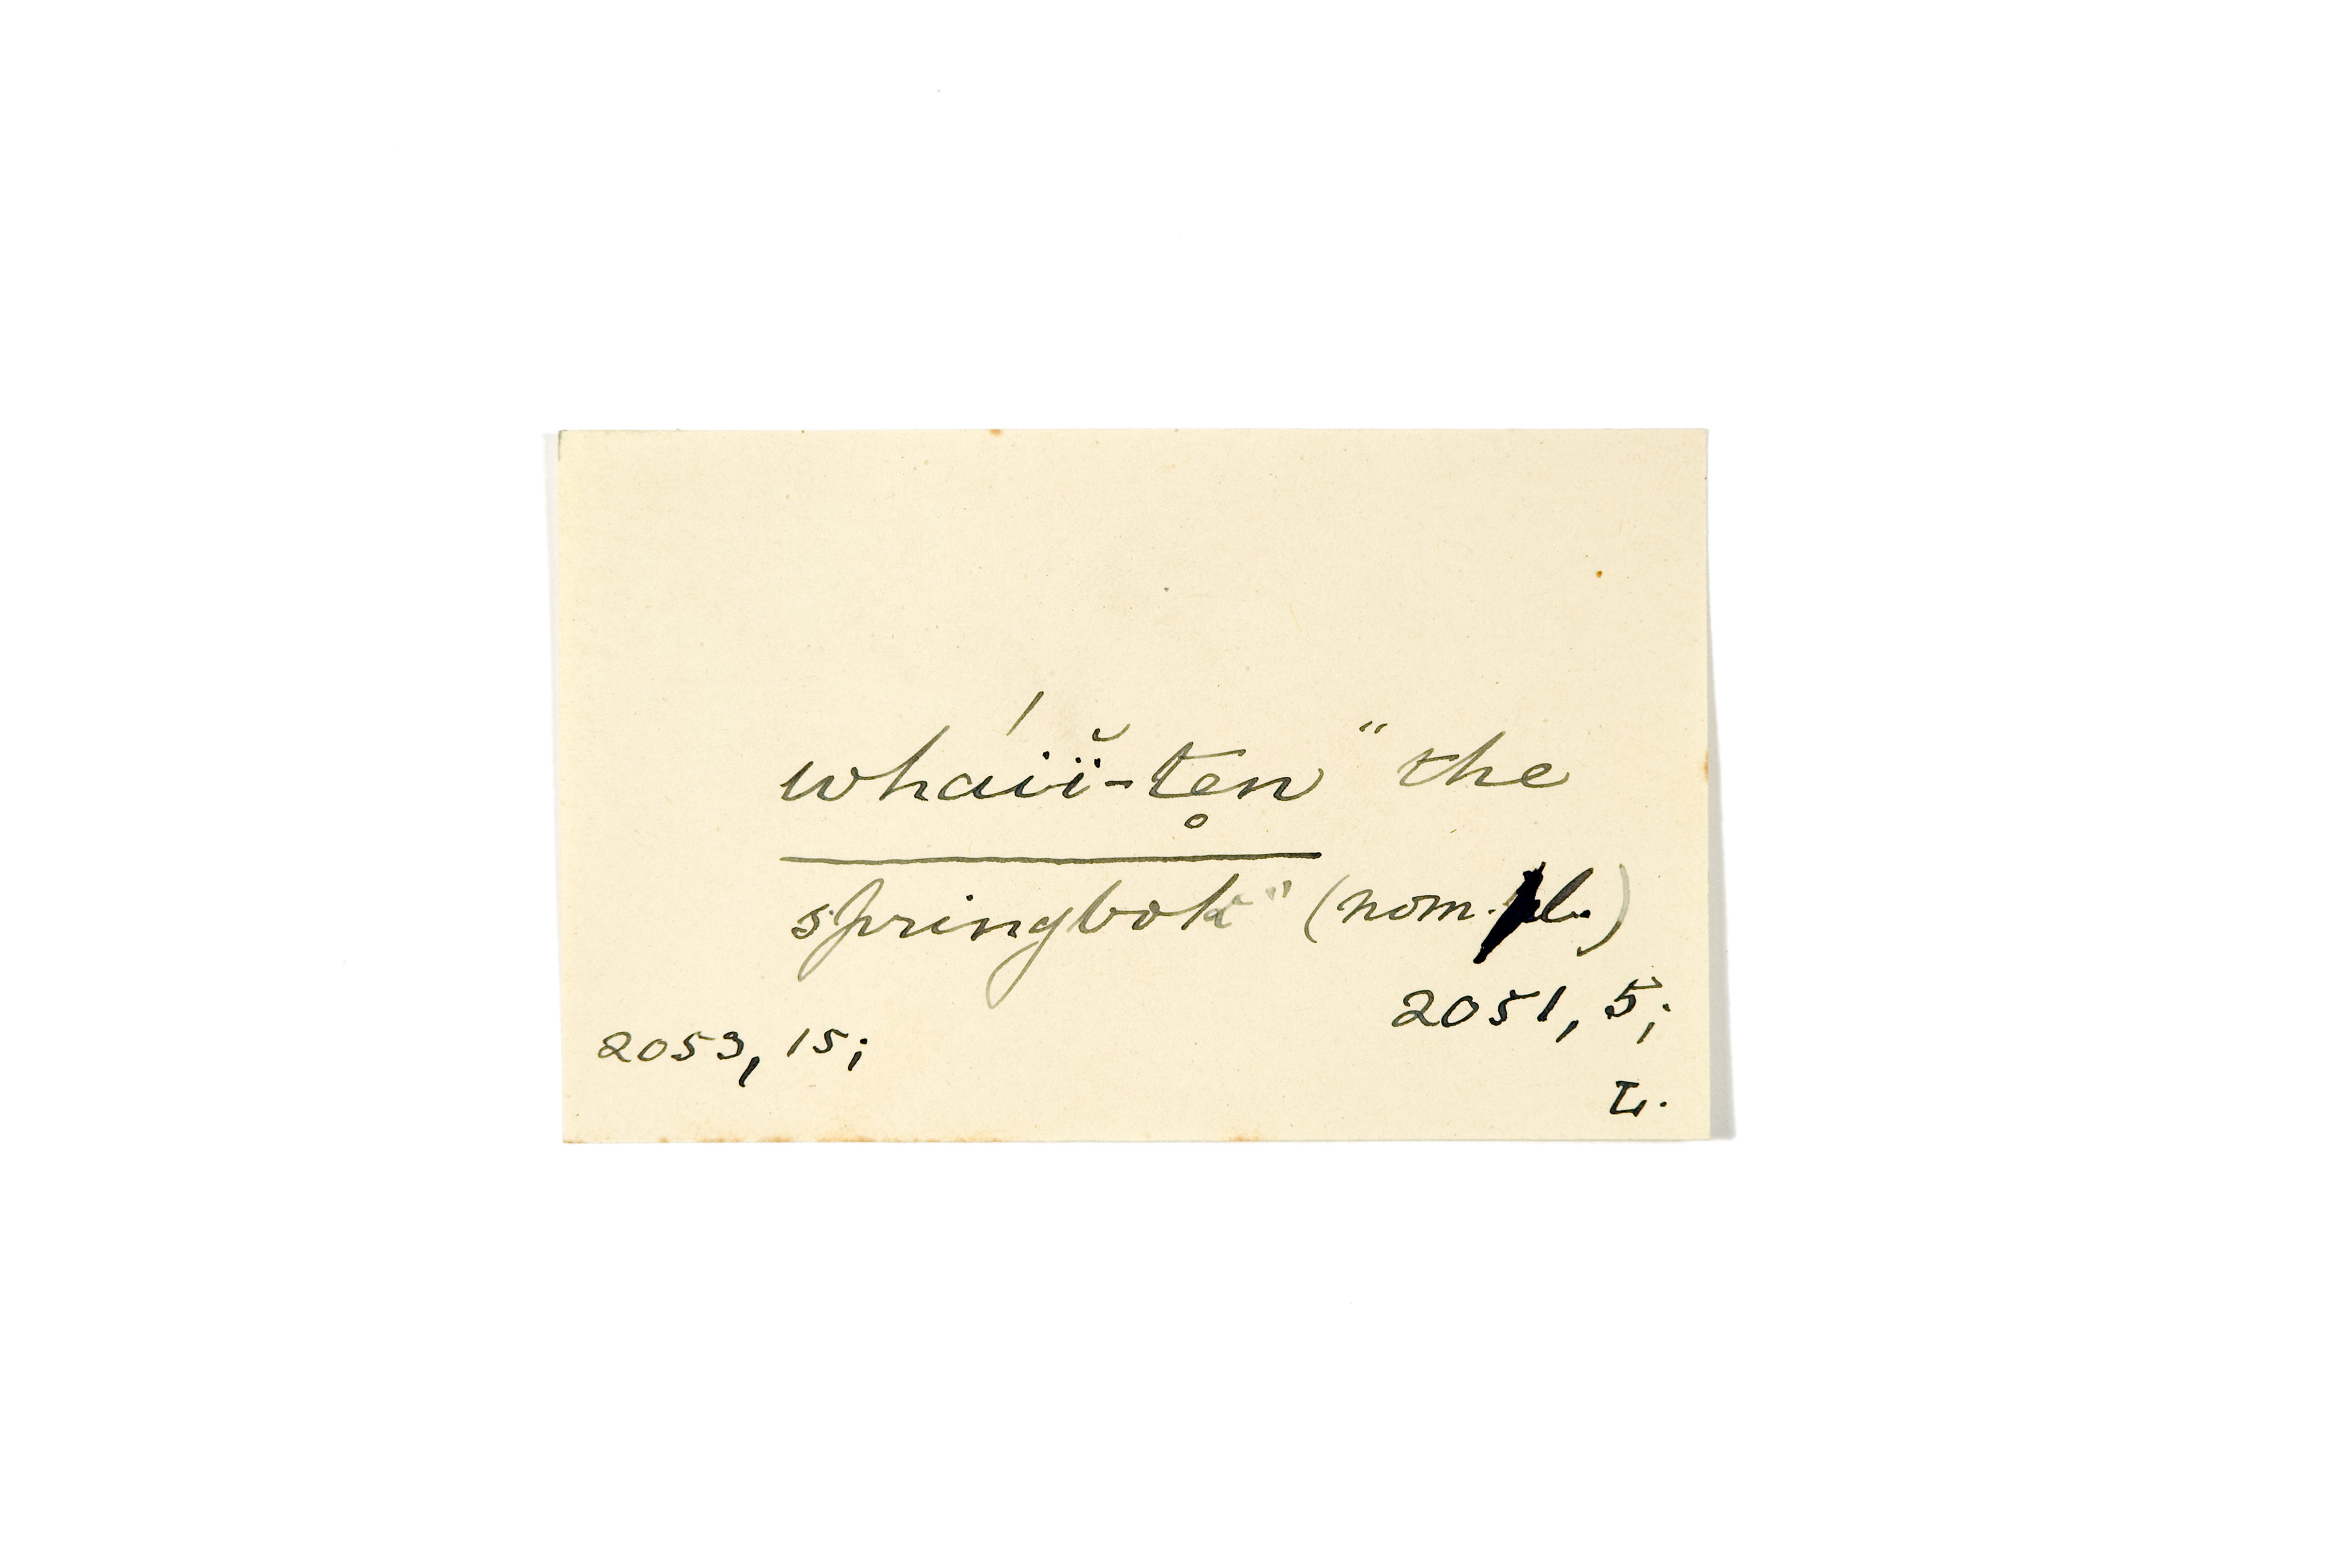 wháiï̆-te̥n "the
springbok" (nom. pl.)
2051, 5;
2053, 15;
L.